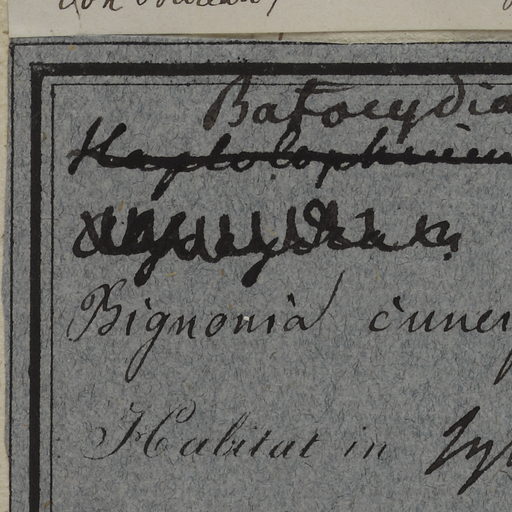 Batocydia
Haplolophium
Bignonia cunei
Habitat in Syl